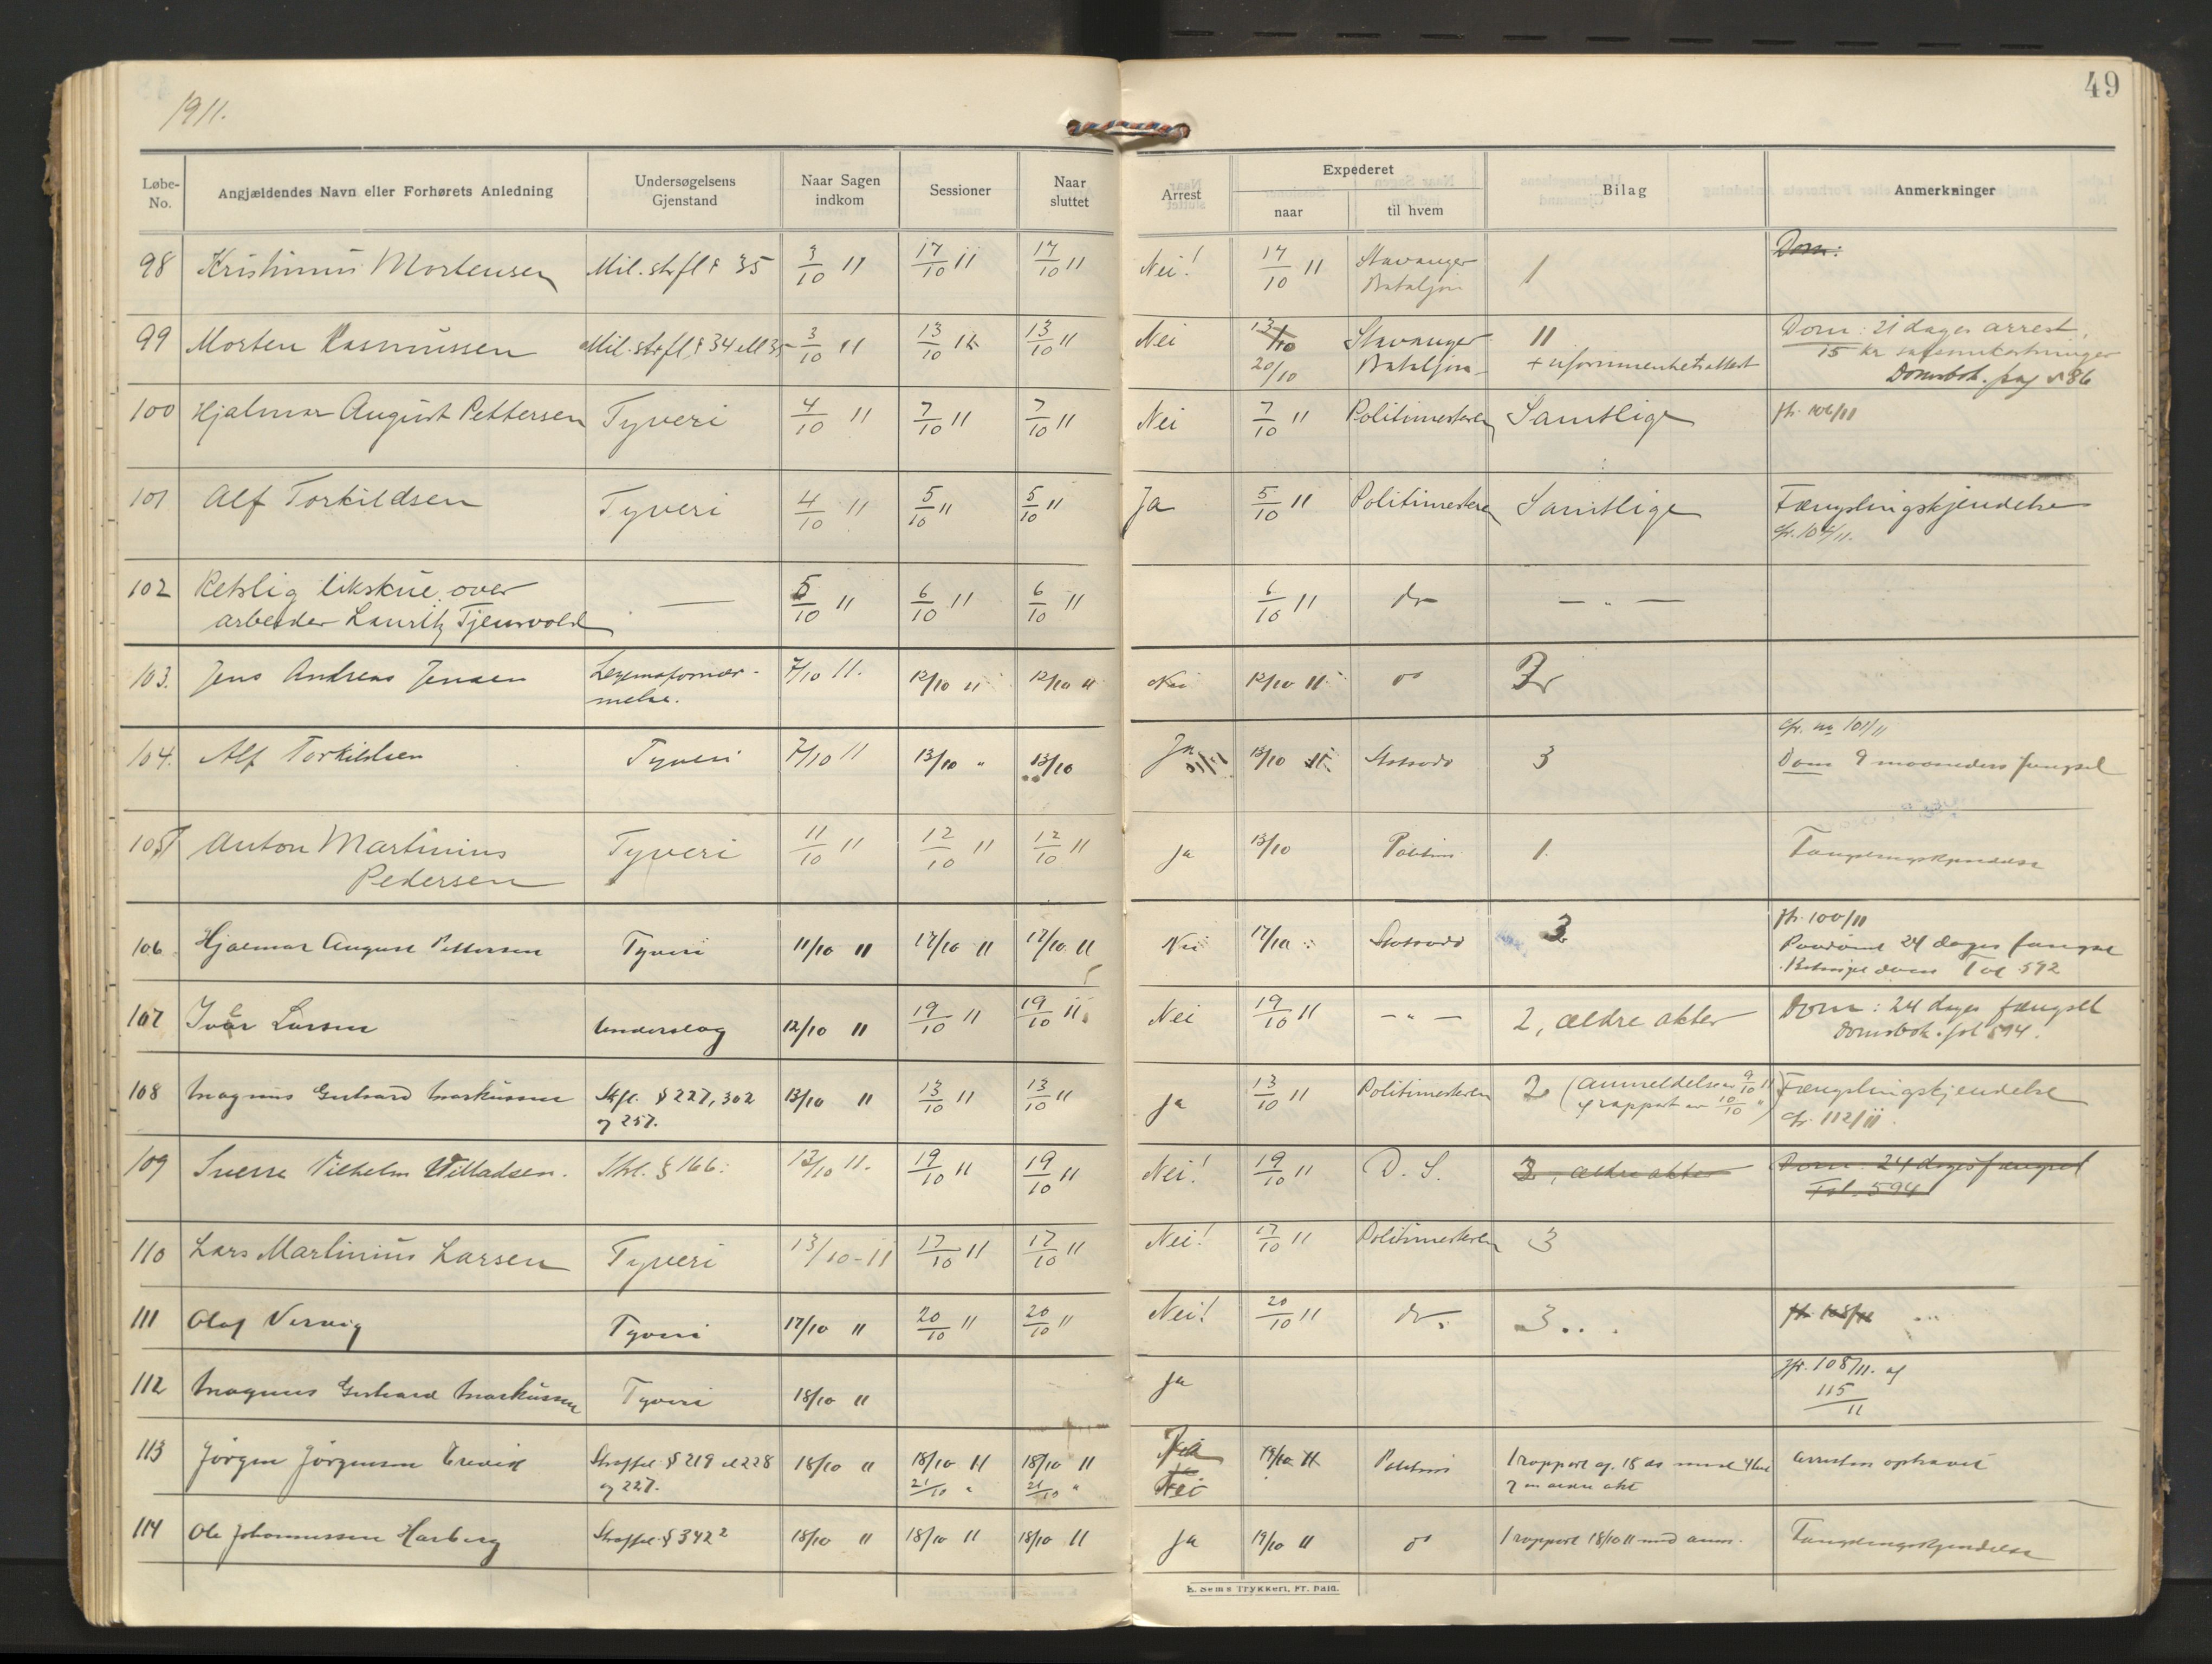 1911.
49
Løbe-No. Angjældendes Navn eller Forhørets Anledning Undersøgelsens Gjenstand Naar Sagen indkom Sessioner Naar sluttet Arrest Expederet naar til hvem Bilag Anmerkninger
98 Kristinius Mortensen Mil. strfl § 35 3/10 11 17/10 11 17/10 11 Nei! 17/10 11 Stavanger Bataljon 1 Dom:
99 Morten Rasmussen Mil. strfl. § 34 ell 35 3/10 11 13/10 11 13/10 11 Nei 13/10 20/10 Stavanger Bataljon 11 + uformuenhetsattest Dom: 21 dages arrest,
15 kr saksomkostninger
Domsbok. pag 586
100 Hjalmar August Pettersen Tyveri 4/10 11 7/10 11 7/10 11 Nei 7/10 11 Politimesteren Samtlige jfr. 106/11
101 Alf Torkildsen Tyveri 4/10 11 5/10 11 5/10 11 Ja 5/10 11 Politimesteren Samtlige Fængslingskjendelse
cfr. 104/11.
102 Retslig likskue over
arbeider Lauritz Tjensvold — 5/10 11 6/10 11 6/10 11 6/10 11 do — " —
103. Jens Andreas Jensen Legemsfornær-
melse. 7/10 11. 12/10 11 12/10 11 Nei 12/10 11 do 3
104. Alf Torkildsen Tyveri 7/10 11 13/10 " 13/10 Ja 13/10 11 Statsadv 3 cfr. no 101/11
Dom 9 maaneders fængsel
105 Anton Martinius
Pedersen Tyveri 11/10 11 12/10 11 12/10 11 Ja 13/10 Politim 1. Fængslingskjendelse
106 Hjalmar August Pettersen Tyveri 11/10 11 17/10 11 17/10 11 Nei 17/10 Statsadv 3 jfr. 100/11
24 dages fængsel
Betinget dom Fol 592
107 Ivar Larsen Underslag 12/10 11 19/10 11 19/10 11 Nei 19/10 11 — " — 2, ældre akter Dom: 24 dages fængsel
Domsbok. fol 594.
108 Magnus Gerhard Markussen Stfl. § 227, 302
og 257. 13/10 11 13/10 11 13/10 11 Ja 13/10 11 Politimesteren 2 (anmeldelse av 9/10 11
og rapport av 10/10 ") Fængslingskjendelse
cfr. 112/11.
109 Sverre Vilhelm Villadsen. Stl. § 166. 13/10 11. 19/10 11 19/10 11 Nei! 19/10 11 D. S. 3, ældre akter Dom: 24 dages fængsel
Fol. 594
110 Lars Martinius Larsen Tyveri 13/10-11 17/10 11 17/10 11 Nei! 17/10 11 Politimesteren 3
111 Olaf Vervig Tyveri 17/10 11 20/10 11 20/10 11 Nei! 20/10 11 do 3 jfr. 108/11
112 Magnus Gerhard Markussen Tyveri 18/10 11 Ja jfr. 108/11. og
115/11
113 Jørgen Jørgensen Straffel. § 219 el 228
og 227. 18/10 11 18/10 11 21/10 " 18/10 11 21/10 " Ja Nei 19/10 11 Politim 1 rapport af 18 ds med
og en ældre akt Arresten ophævet
114 Ole Johannessen Harberg Straffel § 342² 18/10 11 18/10 11 18/10 11 Ja 19/10 11 do 1 rapport 18/10 11 med anm. Fængslingskjendelse
E. Sems Trykkeri, Fr. hald.